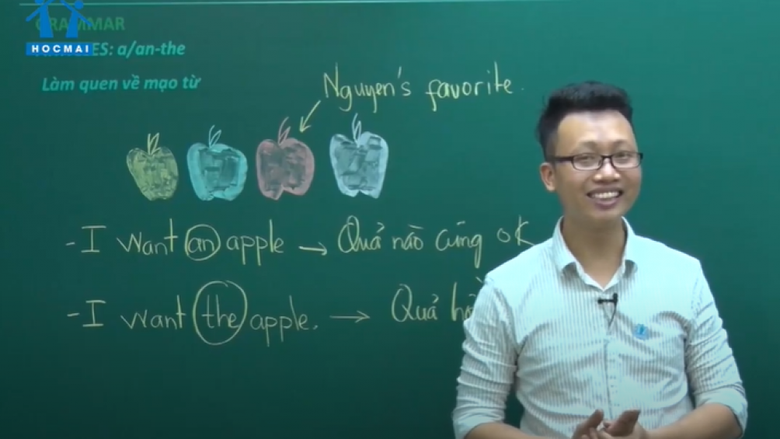 GRAMMAR
HOCMAI
ES: a/an-the
Làm quen về mạo từ
Nguyen's favorite.
- I want an apple → Quả nào cũng ok
- I want the apple. → Quả